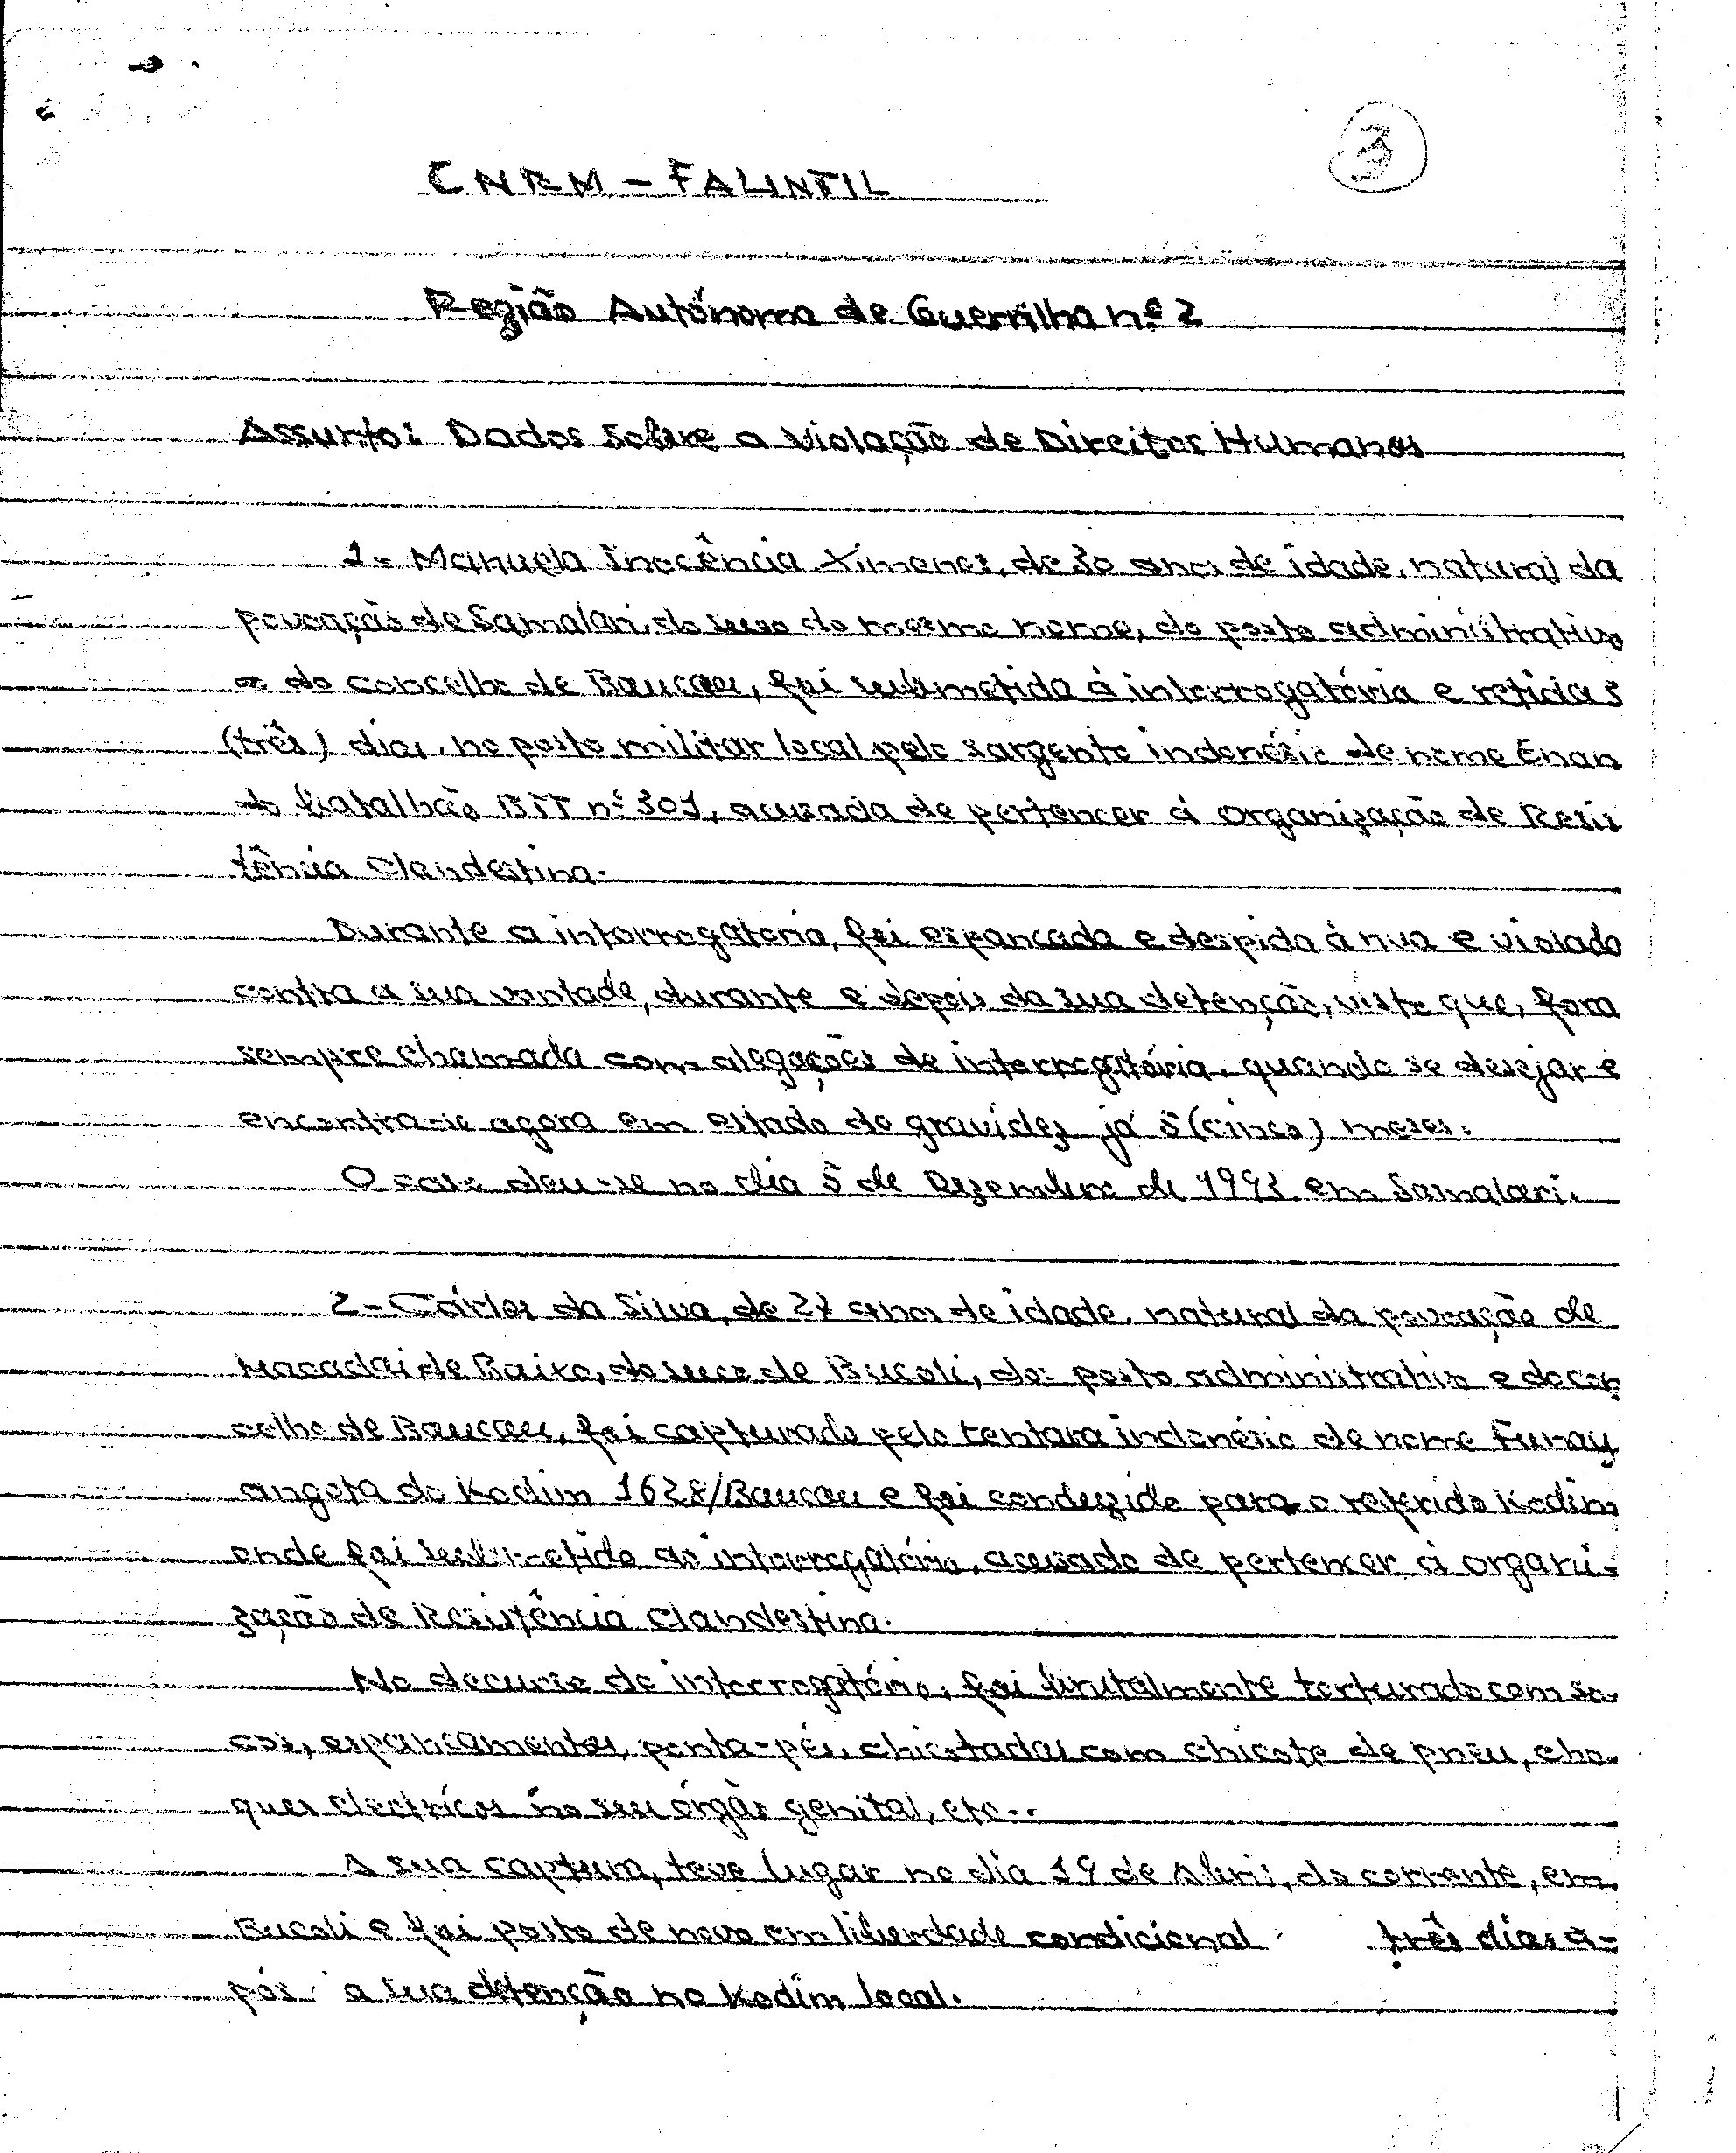 3
CNRM - FALINTIL
Região Autónoma de Guerrilha nº 2
Assunto: Dados sobre a Violação de Direitos Humanos
1- Manuela Inocência Ximenes, de 30 anos de idade, natural da
povoação de Samalari, do suco do mesmo nome, do posto administrativo
e do concelho de Baucau, foi submetida à interrogatória e retida
(três) dias, no posto militar local pelo sargento indonésio de nome Enan
do batalhão BTT nº 301, acusada de pertencer à organização de Resis
tência Clandestina.
Durante a interrogatória, foi espancada e despida à nua e violado
contra a sua vontade, durante e depois da sua detenção, visto que, fora
sempre chamada com alegações de interrogatória, quando se desejar e
encontra-se agora em estado de gravidez já 5 (cinco) meses.
O caso deu-se no dia 5 de Dezembro de 1993 em Samalari.
2- Cárlos da Silva, de 27 anos de idade, natural da povoação de
Macadai de Baixo, do suco de Bucoli, do posto administrativo e do con
celho de Baucau, foi capturado pelo tentara indonésio de nome Funay
angota do Kodim 1628/Baucau e foi conduzido para o referido Kodim
onde foi submetido ao interrogatório, acusado de pertencer à organi-
zação de Resistência Clandestina.
No decurso do interrogatório, foi brutalmente torturado com so-
cos, espancamentos, ponta-pés, chicotadas com chicote de pnêu, cho-
ques electrícos no seu órgão genital, etc..
A sua captura, teve lugar no dia 19 de Abril, do corrente, em
Bucoli e foi posto de novo em liberdade condicional três dias a-
pós a sua detenção no Kodim local.